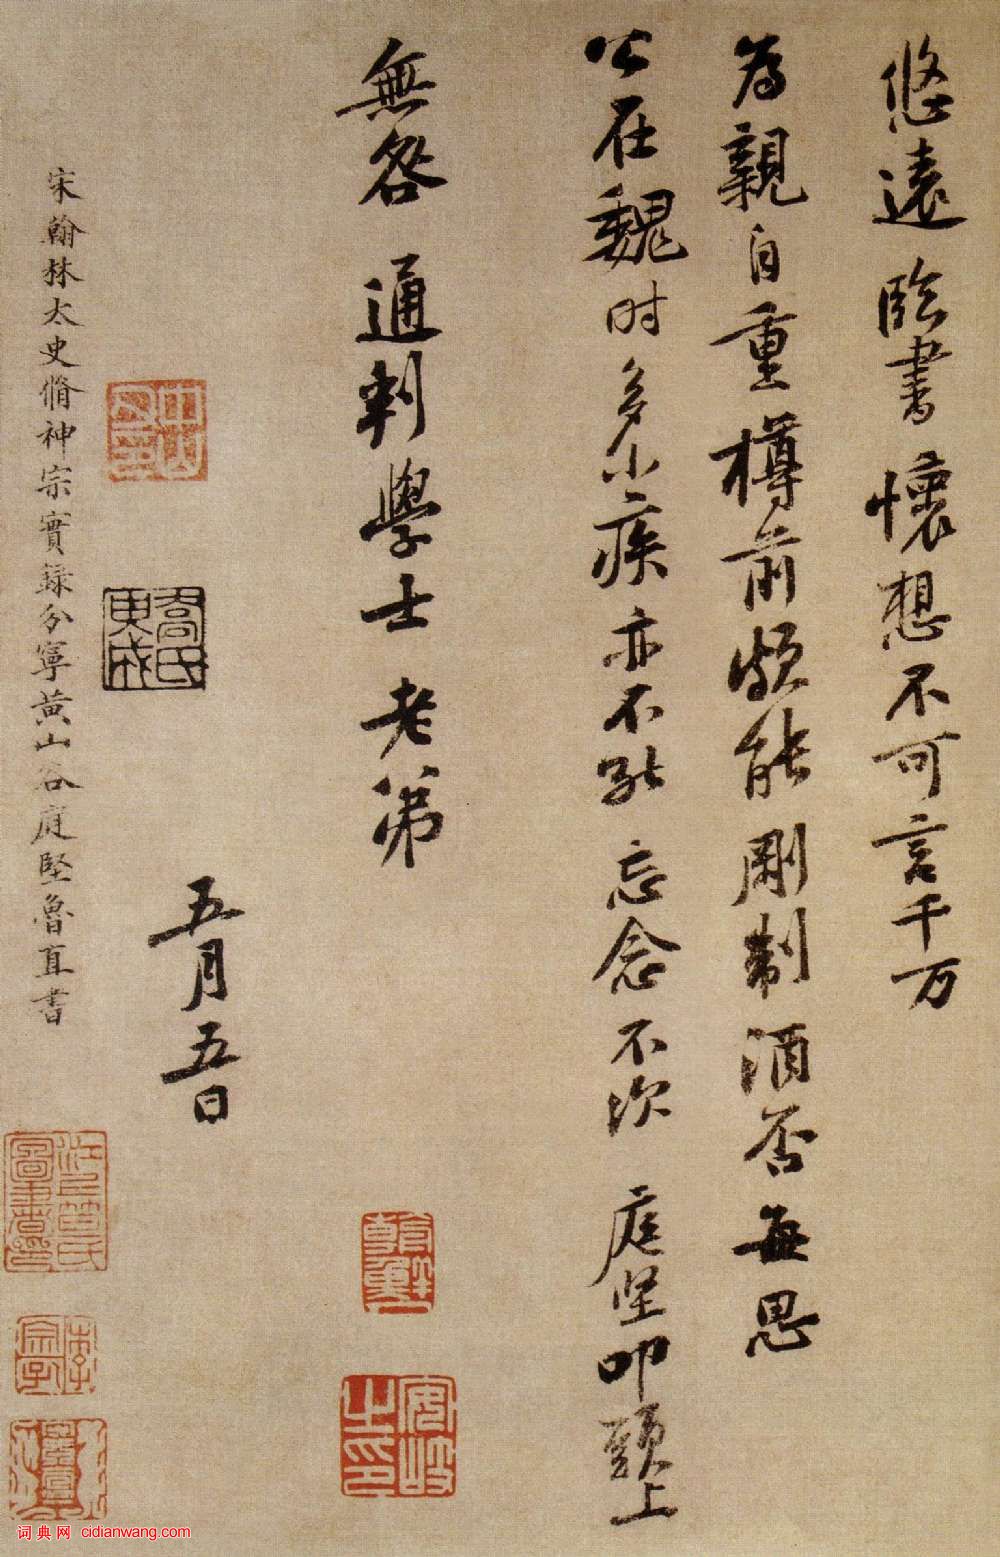 悠遠臨書懷想不可言千万
為親自重樽前頗能剛制酒否每思
公在魏时多小疾亦不能忘念不次庭坚叩頭上
無咎通判學士老弟
五月五日
宋翰林太史脩神宗實録分寧黄山谷庭堅魯直書
安岐之印
词典网 cidianwang.com